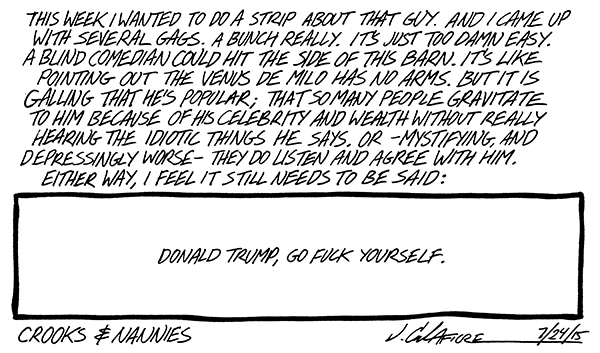 THIS WEEK I WANTED TO DO A STRIP ABOUT THAT GUY. AND I CAME UP
WITH SEVERAL GAGS. A BUNCH REALLY. IT'S JUST TOO DAMN EASY.
A BLIND COMEDIAN COULD HIT THE SIDE OF THIS BARN. IT'S LIKE
POINTING OUT THE VENUS DE MILO HAS NO ARMS. BUT IT IS
GALLING THAT HE'S POPULAR; THAT SO MANY PEOPLE GRAVITATE
TO HIM BECAUSE OF HIS CELEBRITY AND WEALTH WITHOUT REALLY
HEARING THE IDIOTIC THINGS HE SAYS. OR -MYSTIFYING, AND
DEPRESSINGLY WORSE- THEY DO LISTEN AND AGREE WITH HIM.
EITHER WAY, I FEEL IT STILL NEEDS TO BE SAID:
DONALD TRUMP, GO FUCK YOURSELF.
CROOKS & NANNIES J. CALAFIORE 7/24/15